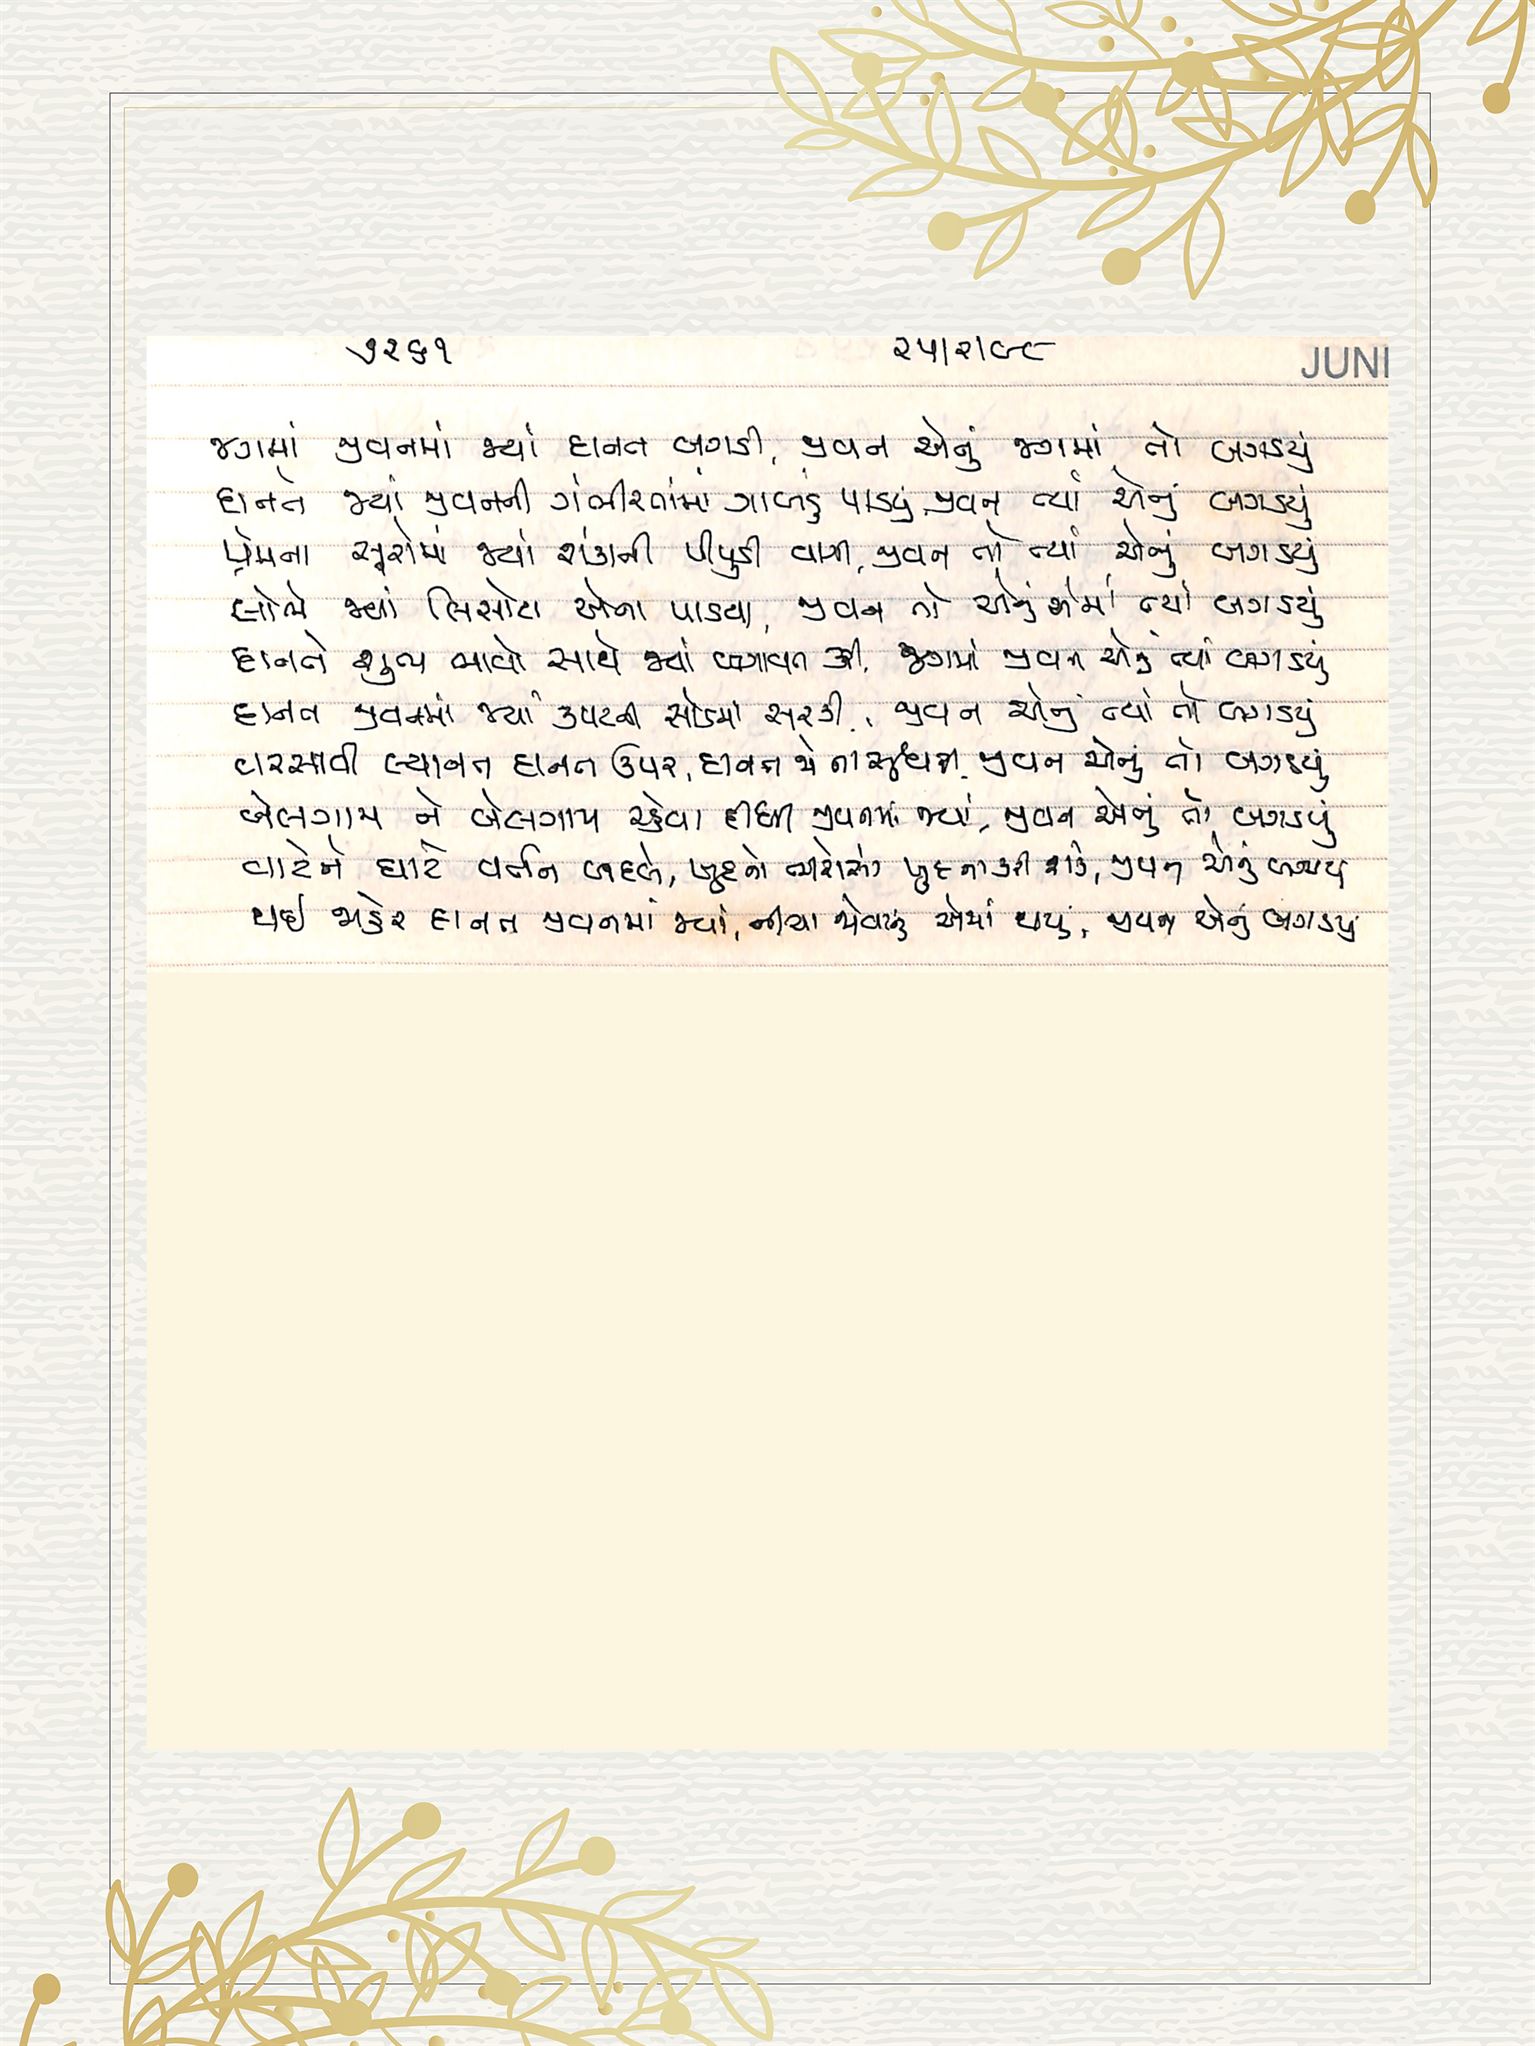 ૭૨૬૧ ૨૫/૨/૯૮ JUNI
જગમાં જીવનમાં જ્યાં દાનત બગડી, જીવન એનું જગમાં તો બગડયું
દાનતે જ્યાં જીવનની ગંભીરતામાં ગાબડું પાડયું જીવન ત્યાં એનું બગડયું
પ્રેમના સૂરોમાં જ્યાં શંકાની પીપુડી વાગી, જીવન તો ત્યાં એનું બગડયું
લોભે જ્યાં લિસોટા એના પાડયા, જીવન તો એનું એમાં ત્યાં બગડયું
દાનતે શુભ ભાવો સાથે જ્યાં બગાવત કરી, જગમાં જીવન એનું ત્યાં બગડયું
દાનત જીવનમાં જ્યાં કપટની સોડમાં સરકી, જીવન એનું ત્યાં તો બગડયું
વરસાવી લ્યાનત દાનત ઉપર, દાનત જે ના સુધરી, જીવન એનું તો બગડયું
બેલગામ ને બેલગામ રહેવા દીધી જીવનમાં જ્યાં, જીવન એનું તો બગડયું
વાટે ને ઘાટે વર્તન બદલે, ખુદનો ભરોસો ખુદ ના કરી શકે, જીવન એનું
થઈ જાહેર દાનત જીવનમાં જ્યાં, નીચા જોવાનું એમાં થયું, જીવન એનું બગડયું